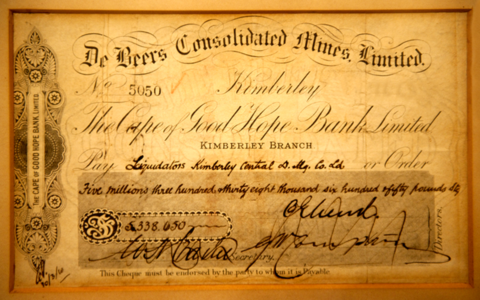 De Beers Consolidated Mines, Limited.
No 5050 Kimberley
The Cape of Good Hope Bank Limited
KIMBERLEY BRANCH
Pay Liquidators Kimberley Central D. Mg. Co. Ld or Order
Five millions three hundred thirty eight thousand six hundred & fifty pounds Stg
£5,338,650
Secretary.
Directors.
This Cheque must be endorsed by the party to whom it is Payable.
THE CAPE OF GOOD HOPE BANK LIMITED